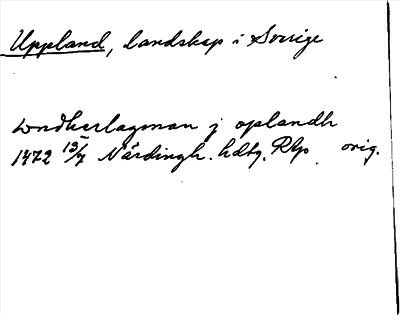 Uppland, landskap i Sverige
wndherlagman j oplandh
1472 13/7 Närdingh. hdtg. Rap orig.